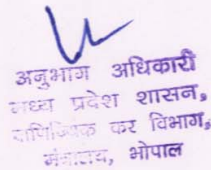 अनुभाग अधिकारी
मध्य प्रदेश शासन,
वाणिज्यिक कर विभाग,
मंत्रालय, भोपाल